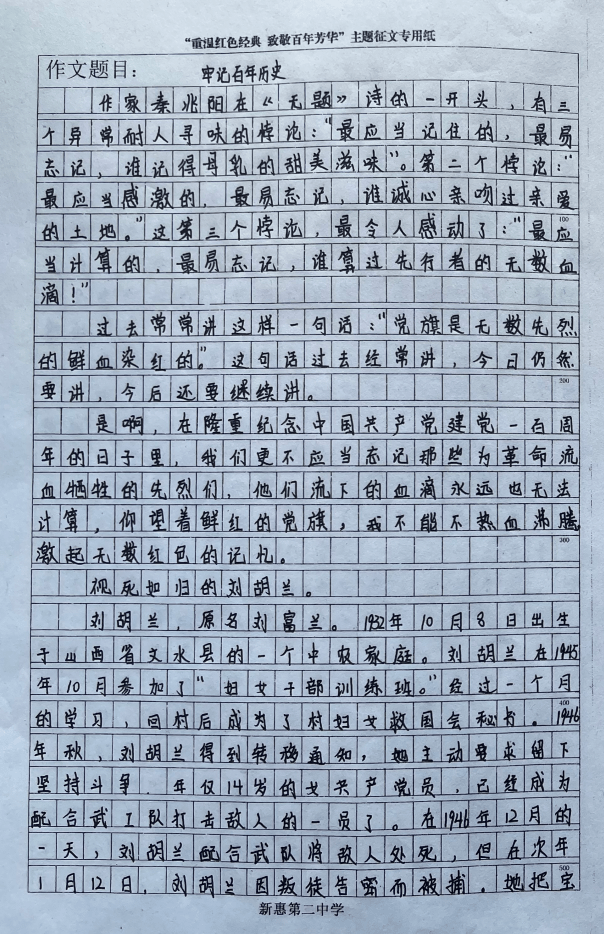 “重温红色经典 致敬百年芳华”主题征文专用纸
作文题目： 牢记百年历史
作家秦兆阳在《无题》诗的一开头，有三
个异常耐人寻味的悖论：“最应当记住的，最易
忘记，谁记得母乳的甜美滋味”。第二个悖论：“
最应当感激的，最易忘记，谁诚心亲吻过亲爱
的土地。”这第三个悖论，最令人感动了：“最应
100
当计算的，最易忘记，谁算过先行者的无数血
滴！”
过去常常讲这样一句话：“党旗是无数先烈
的鲜血染红的。”这句话过去经常讲，今日仍然
要讲，今后还要继续讲。
200
是啊，在隆重纪念中国共产党建党一百周
年的日子里，我们更不应当忘记那些为革命流
血牺牲的先烈们，他们流下的血滴永远也无法
计算，仰望着鲜红的党旗，我不能不热血沸腾
激起无数红色的记忆。
300
视死如归的刘胡兰。
刘胡兰，原名刘富兰。1932年10月8日出生
于山西省文水县的一个中农家庭。刘胡兰在1945
年10月参加了“妇女干部训练班。”经过一个月
的学习，回村后成为了村妇女救国会秘书。1946
400
年秋，刘胡兰得到转移通知，她主动要求留下
坚持斗争．年仅14岁的女共产党员，已经成为
配合武工队打击敌人的一员了。在1946年12月的
一天，刘胡兰配合武队将敌人处死，但在次年
1月12日，刘胡兰因叛徒告密而被捕．她把宝
500
新惠第二中学